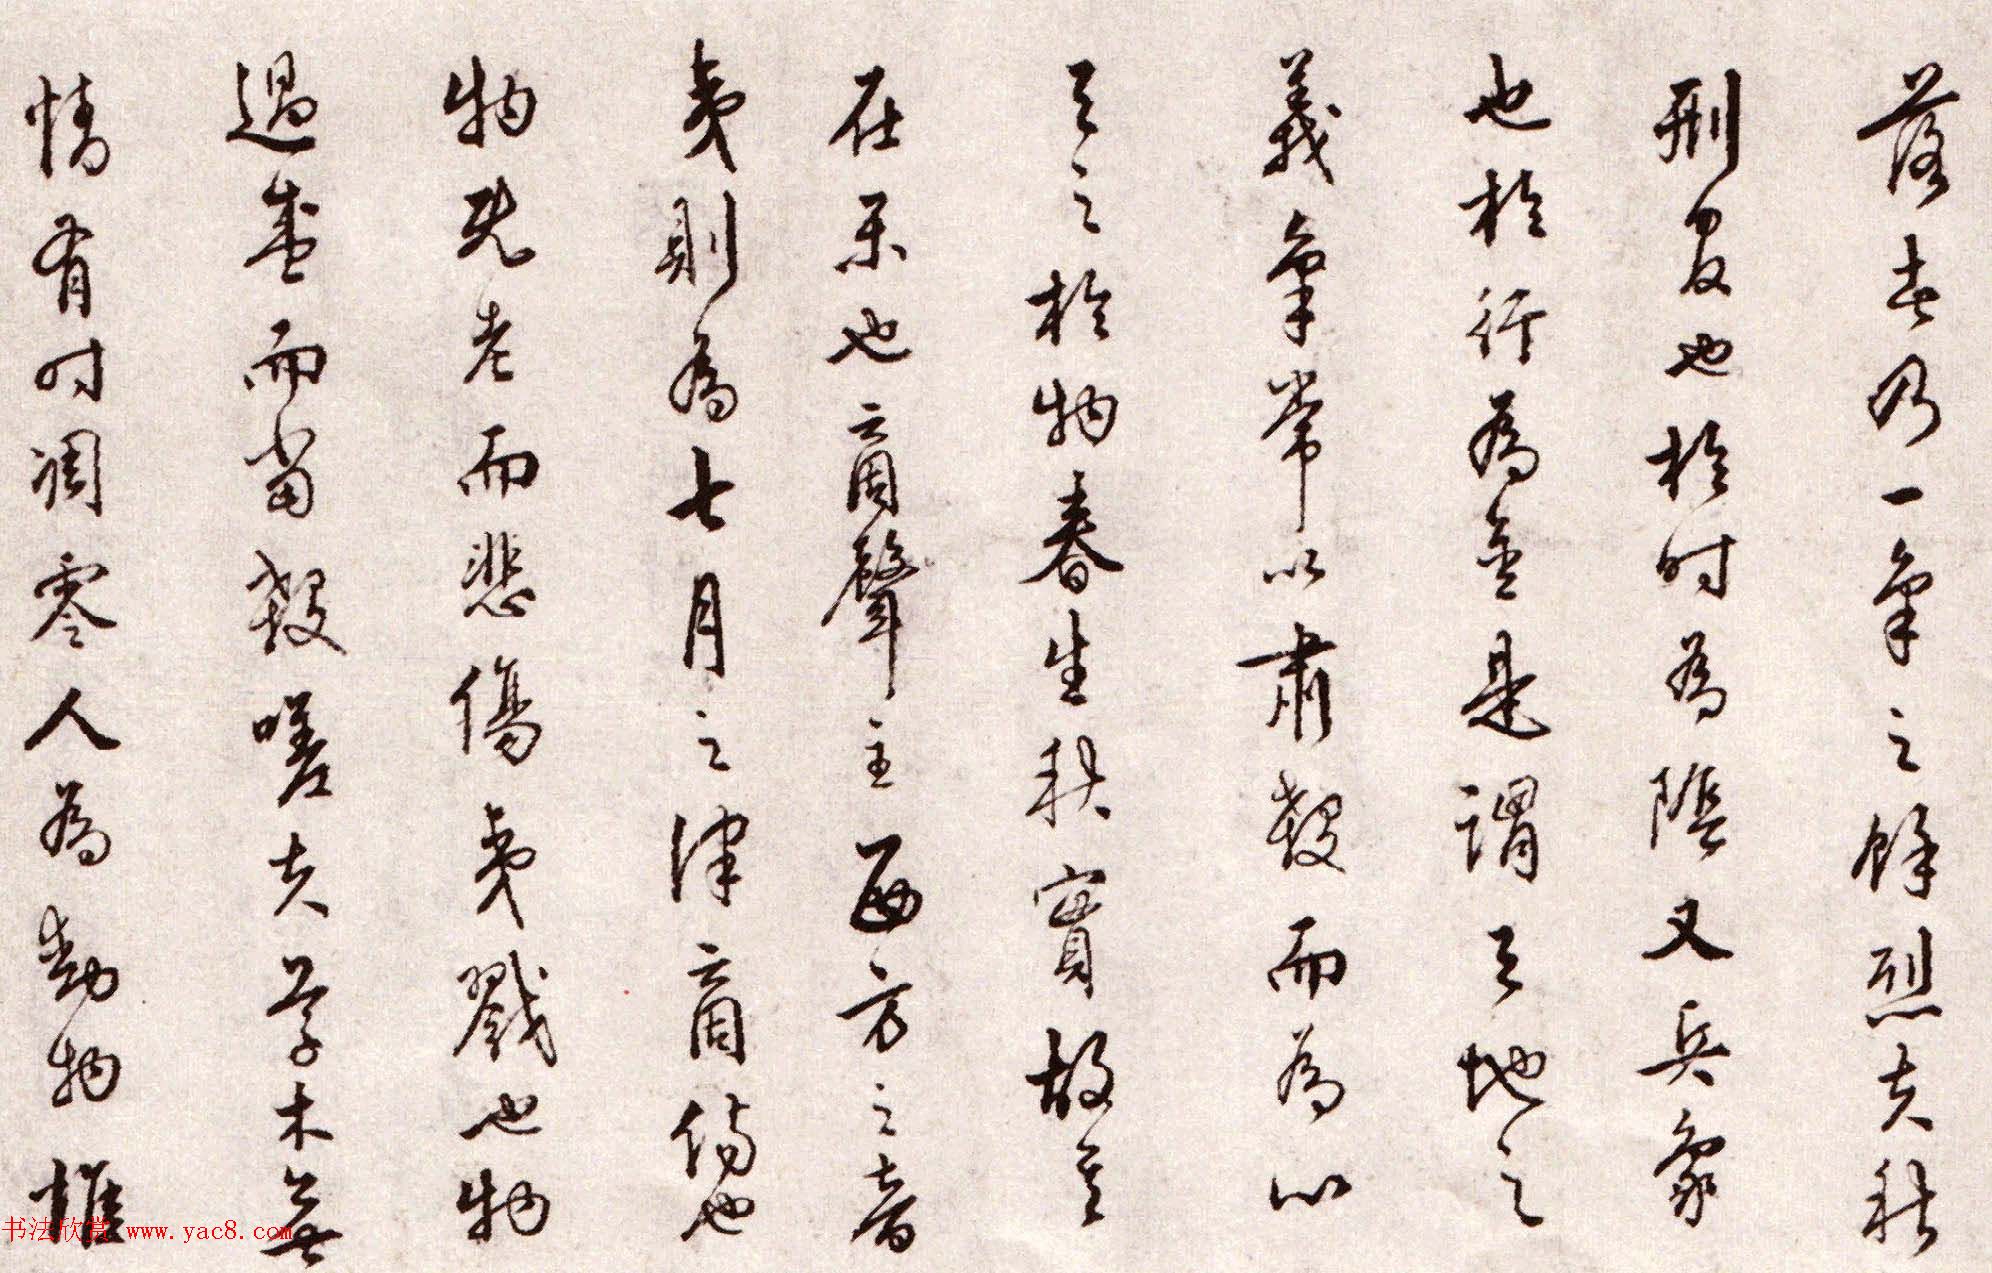 落者乃一氣之餘烈夫秋
刑官也於時為陰又兵象
也於行為金是謂天地之
義氣常以肅殺而為心
天之於物春生秋實故其
在樂也商聲主西方之音
夷則為七月之律商傷也
物既老而悲傷夷戮也物
過盛而當殺嗟夫草木無
情有時凋零人為動物惟
书法欣赏 www.yac8.com